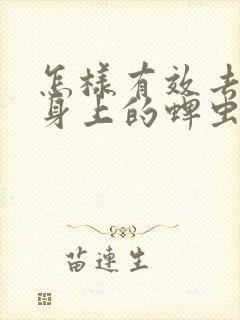 怎樣有效去
身上的蜱虫
苗連生